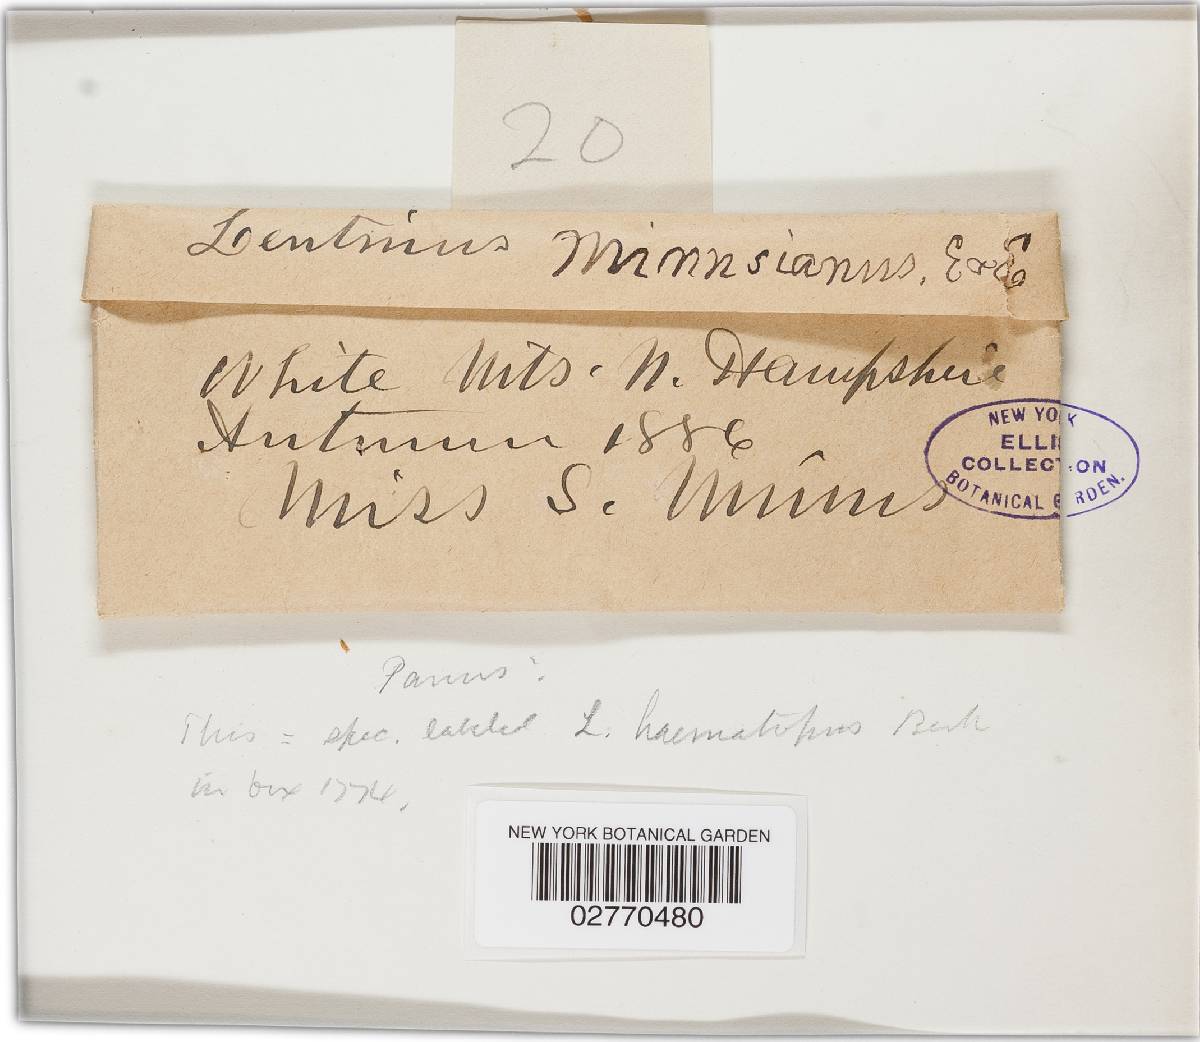 20
Lentinus Minnsianus, E&E
White Mts. N. Hampshire
Autumn 1886
Miss S. Minns
NEW YORK
ELLIS
COLLECTION
BOTANICAL GARDEN.
Panus:
This = spec. labeled L. haematopus Berk
in box 1774.
NEW YORK BOTANICAL GARDEN
02770480